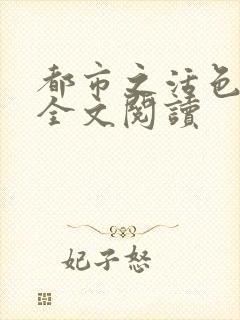 都市之活色
全文閱讀
妃子怒